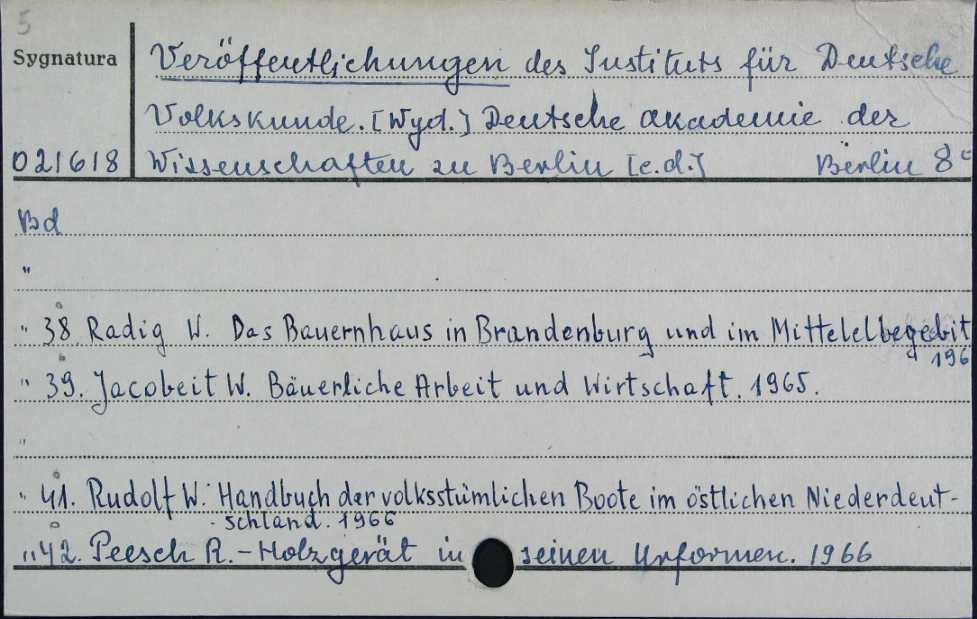 5
Sygnatura
Veröffentlichungen des Instituts für Deutsche
Volkskunde. [Wyd.] Deutsche akademie der
021618 Wissenschaften zu Berlin [e.d.] Berlin 8°
Bd
"
" 38 Radig W. Das Bauernhaus in Brandenburg und im Mittelelbegebit
196
" 39. Jacobeit W. Bäuerliche Arbeit und Wirtschaft. 1965.
"
" 41. Rudolf W. Handbuch der volksstümlichen Boote im östlichen Niederdeut-
schland. 1966
" 42. Peesch R. - Holzgerät in seinen Urformen. 1966